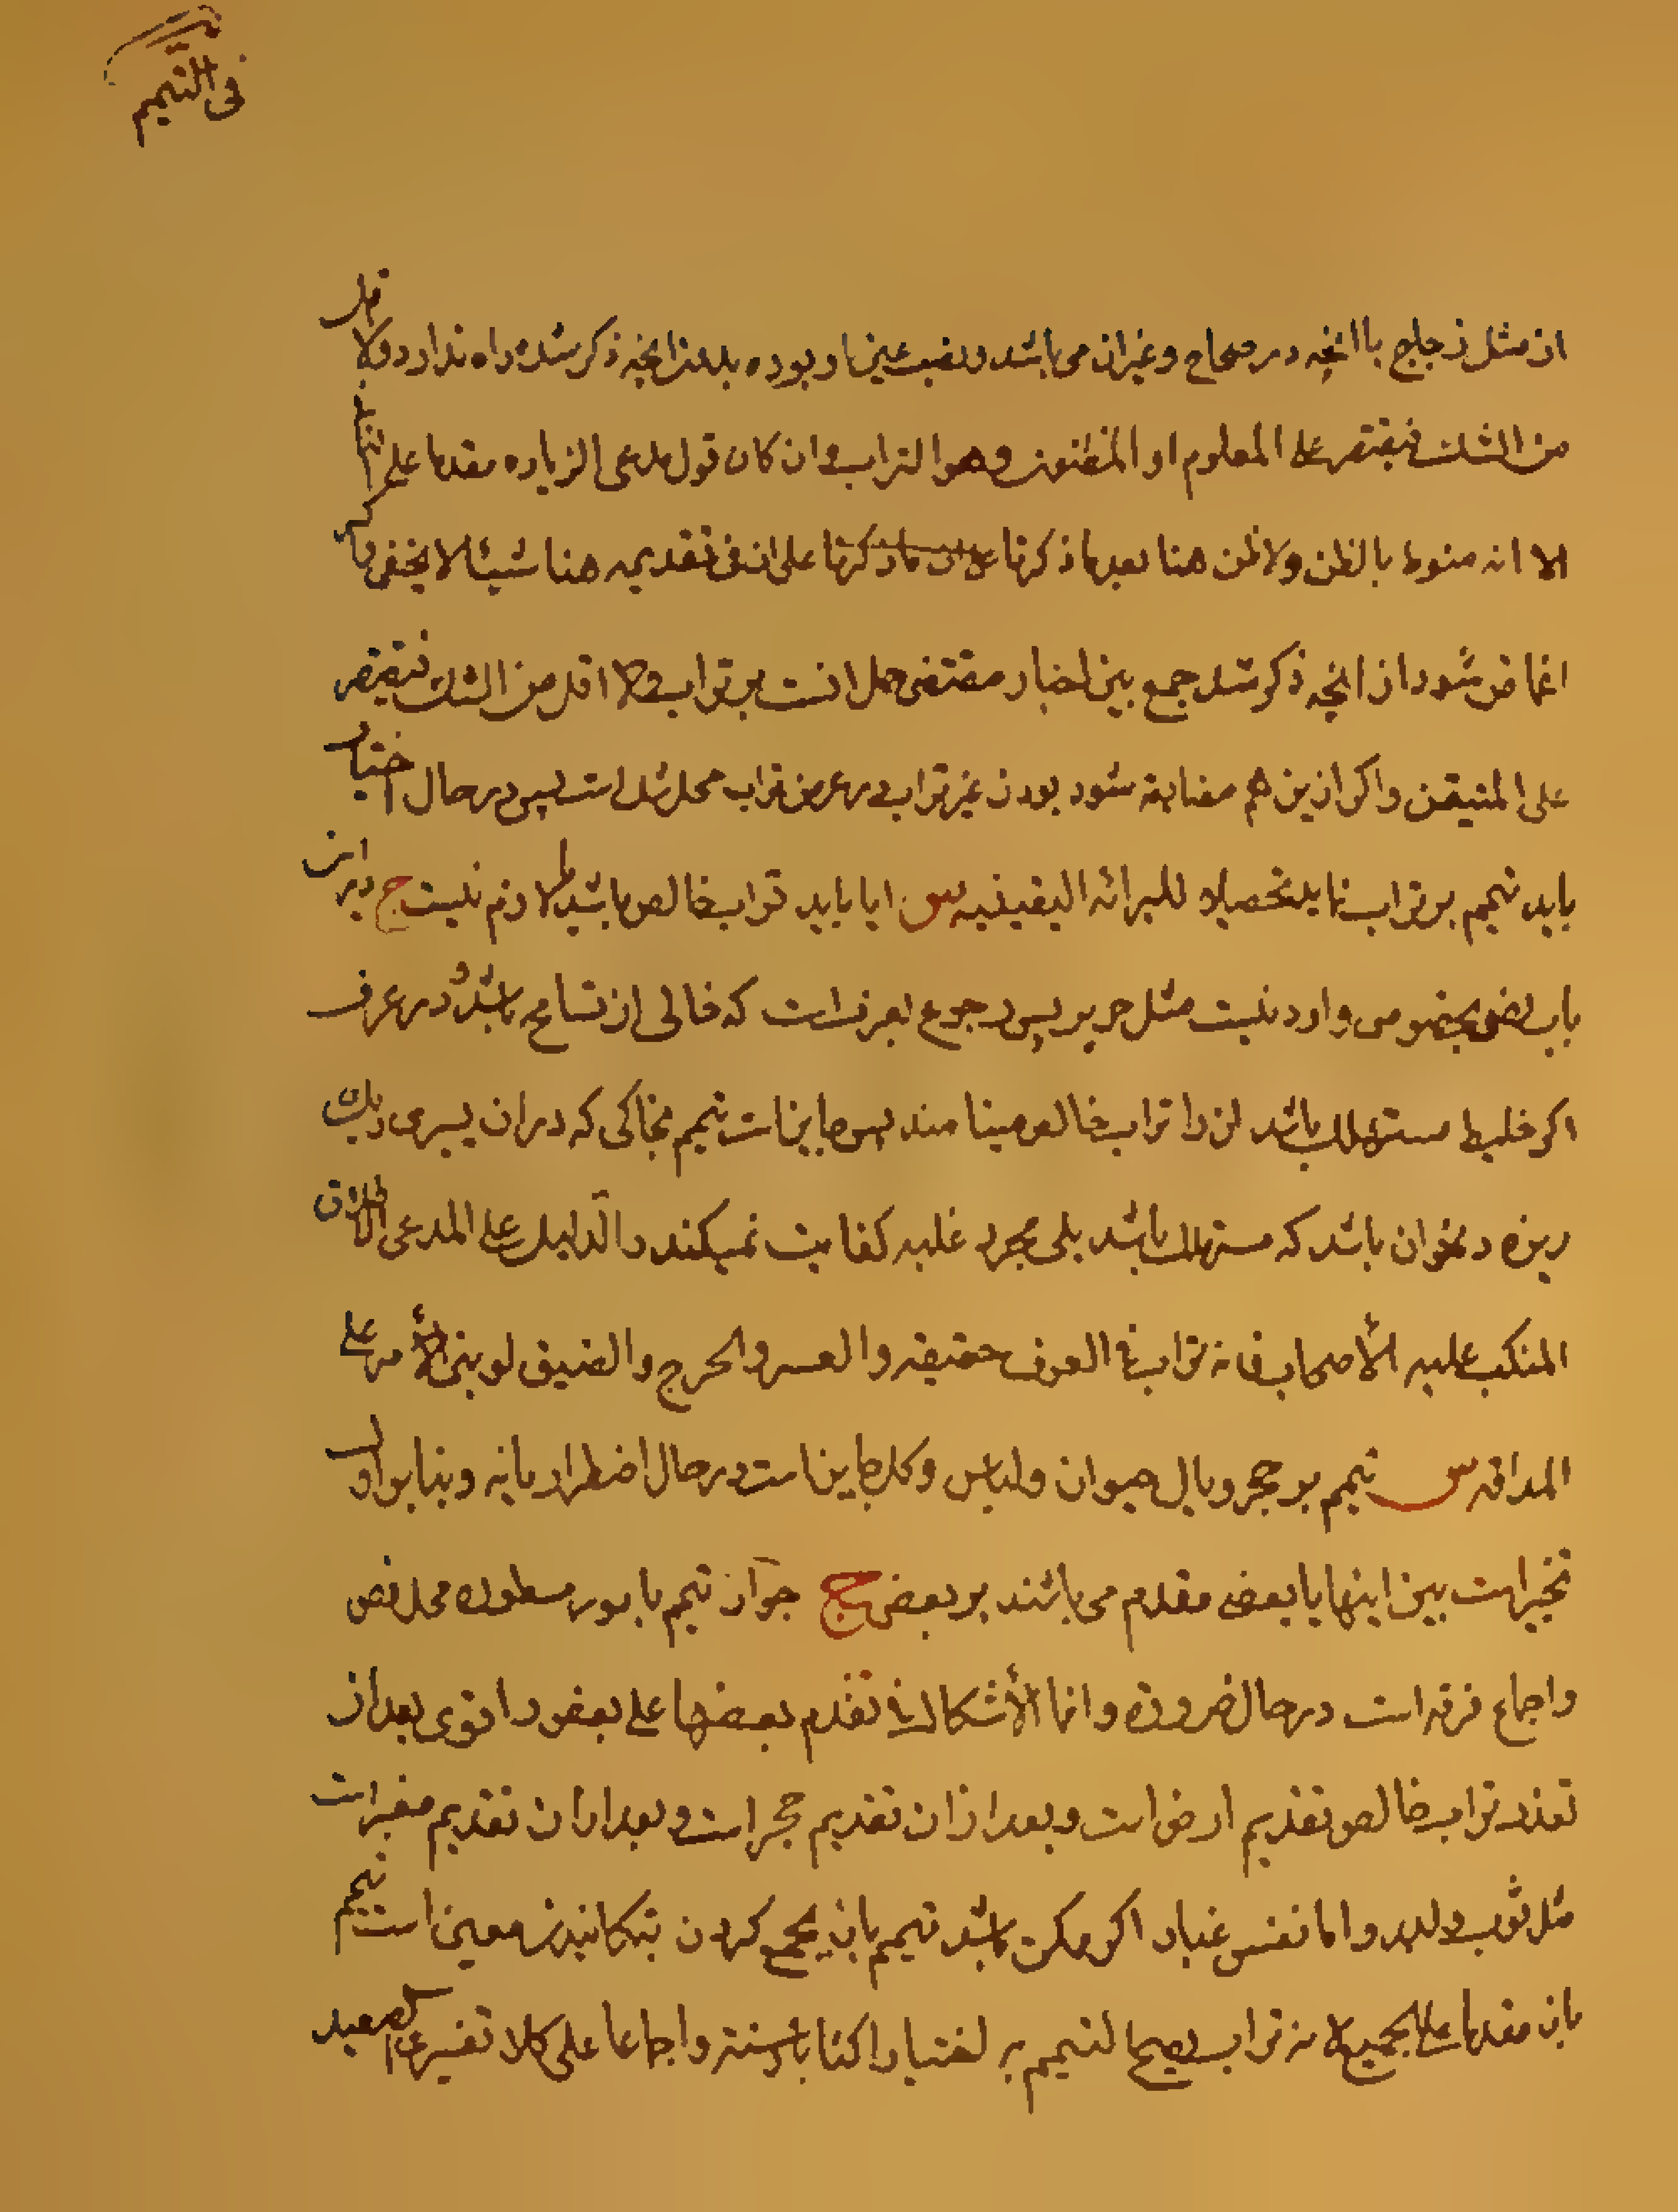 فی التیمم
ان مثل زجاج با انچه در صحاح و غیر ان می باشد و نصب عین او بوده بلعذا انچه ذکر شده راه ندارد و لا اقل
من الشک فیقتصر علی المعلوم او المظنون و هو التراب و ان کان قول مدعی الزیاده مقدما علی
الا انه منوط بالظن و لا ظن هنا بعد ما ذکرنا علی ان فی تقدیمه هنا شیئا لا یخفی
اغماض شود از انچه ذکر شد جمع بین اخبار مقتضی حمل انست بر تراب و لا اقل من الشک فیقتصر
علی المتیقن و اکر ازین هم مضایقه شود بودن غیر تراب در عرض تراب محل شک است پس در حال اختیار
باید تیمم بر تراب نماید تحصیلا للبرائه الیقینیه س ایا باید تراب خالص باشد یا لازم نیست ج در این
باب نص بخصوص وارد نیست مثل حریر پس رجوع بعرف است که خالی از تسامح باشد و در عرف
اکر خلیط مستهلک باشد ان را تراب خالص مینامند پس جایز است تیمم بخاکی که در ان یسیری ریک
ریزه و نحو ان باشد که مستهلک باشد بلی مجرد غلبه کفایت نمیکند و الدلیل علی المدعی الاطلاق
المنکب علیه الاصحاب فانه تراب فی العرف حقیقه و العسر و الحرج و الضیق لو بنی الامر علی
المداقه س تیمم بر حجر و یال حیوان و لباس و کل جایز است در حال اضطرار یا نه و بنا بر اول
تخیر است بین اینها یا بعضی مقدم می باشند بر بعض ج جواز تیمم بامور مسطوره محل نص
و اجماع فرقه است در حال ضرورة و انما الاشکال فی تقدم بعضها علی بعض و اقوی بعد از
تعذر تراب خالص تقدیم ارض است و بعد از ان تقدیم حجر است و بعد از ان تقدیم مغبر است
مثل ثوب و لبد و اما نفس غبار اکر ممکن باشد تیمم بان بجمع کردن بتکانیدن معین است تیمم
بان مقدما علی الجمیع لانه تراب یصح التیمم به اختیارا کتابا و سنة و اجماعا علی کلا تفسیری الصعید